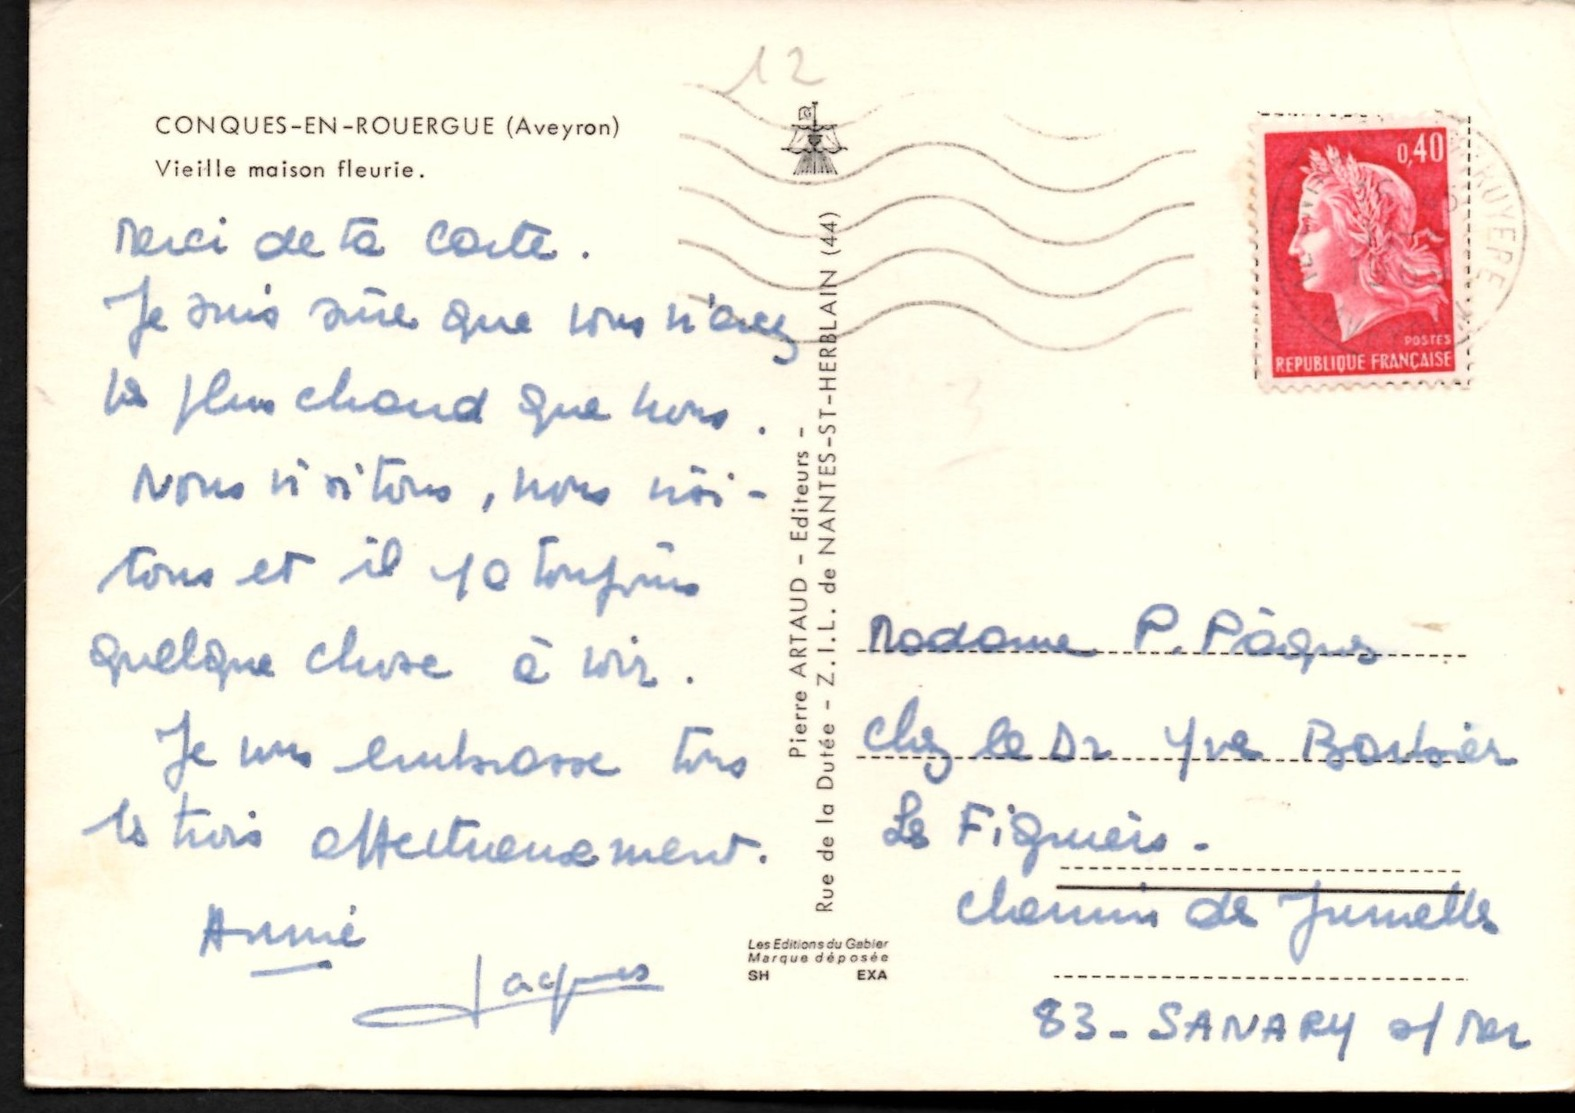 12
CONQUES-EN-ROUERGUE (Aveyron)
Vieille maison fleurie.
Merci de ta carte.
Je suis sûre que vous n'avez
pas plus chaud que nous.
Nous visitons, nous
tons et il y a toujours
quelque chose à voir.
Je vous embrasse tous
les trois affectueusement.
Annie
Jacques
Pierre ARTAUD - Editeurs -
Rue de la Dutée - Z.I.L. de NANTES-ST-HERBLAIN (44)
Les Editions du Gabier
Marque déposée
SH EXA
0,40
POSTES
REPUBLIQUE FRANÇAISE
TRUYERE
Madame P. Pâques
chez le Dr Yves Barbier
Les Figuiers -
Chemin de Jumelles
83 - SANARY s/ Mer